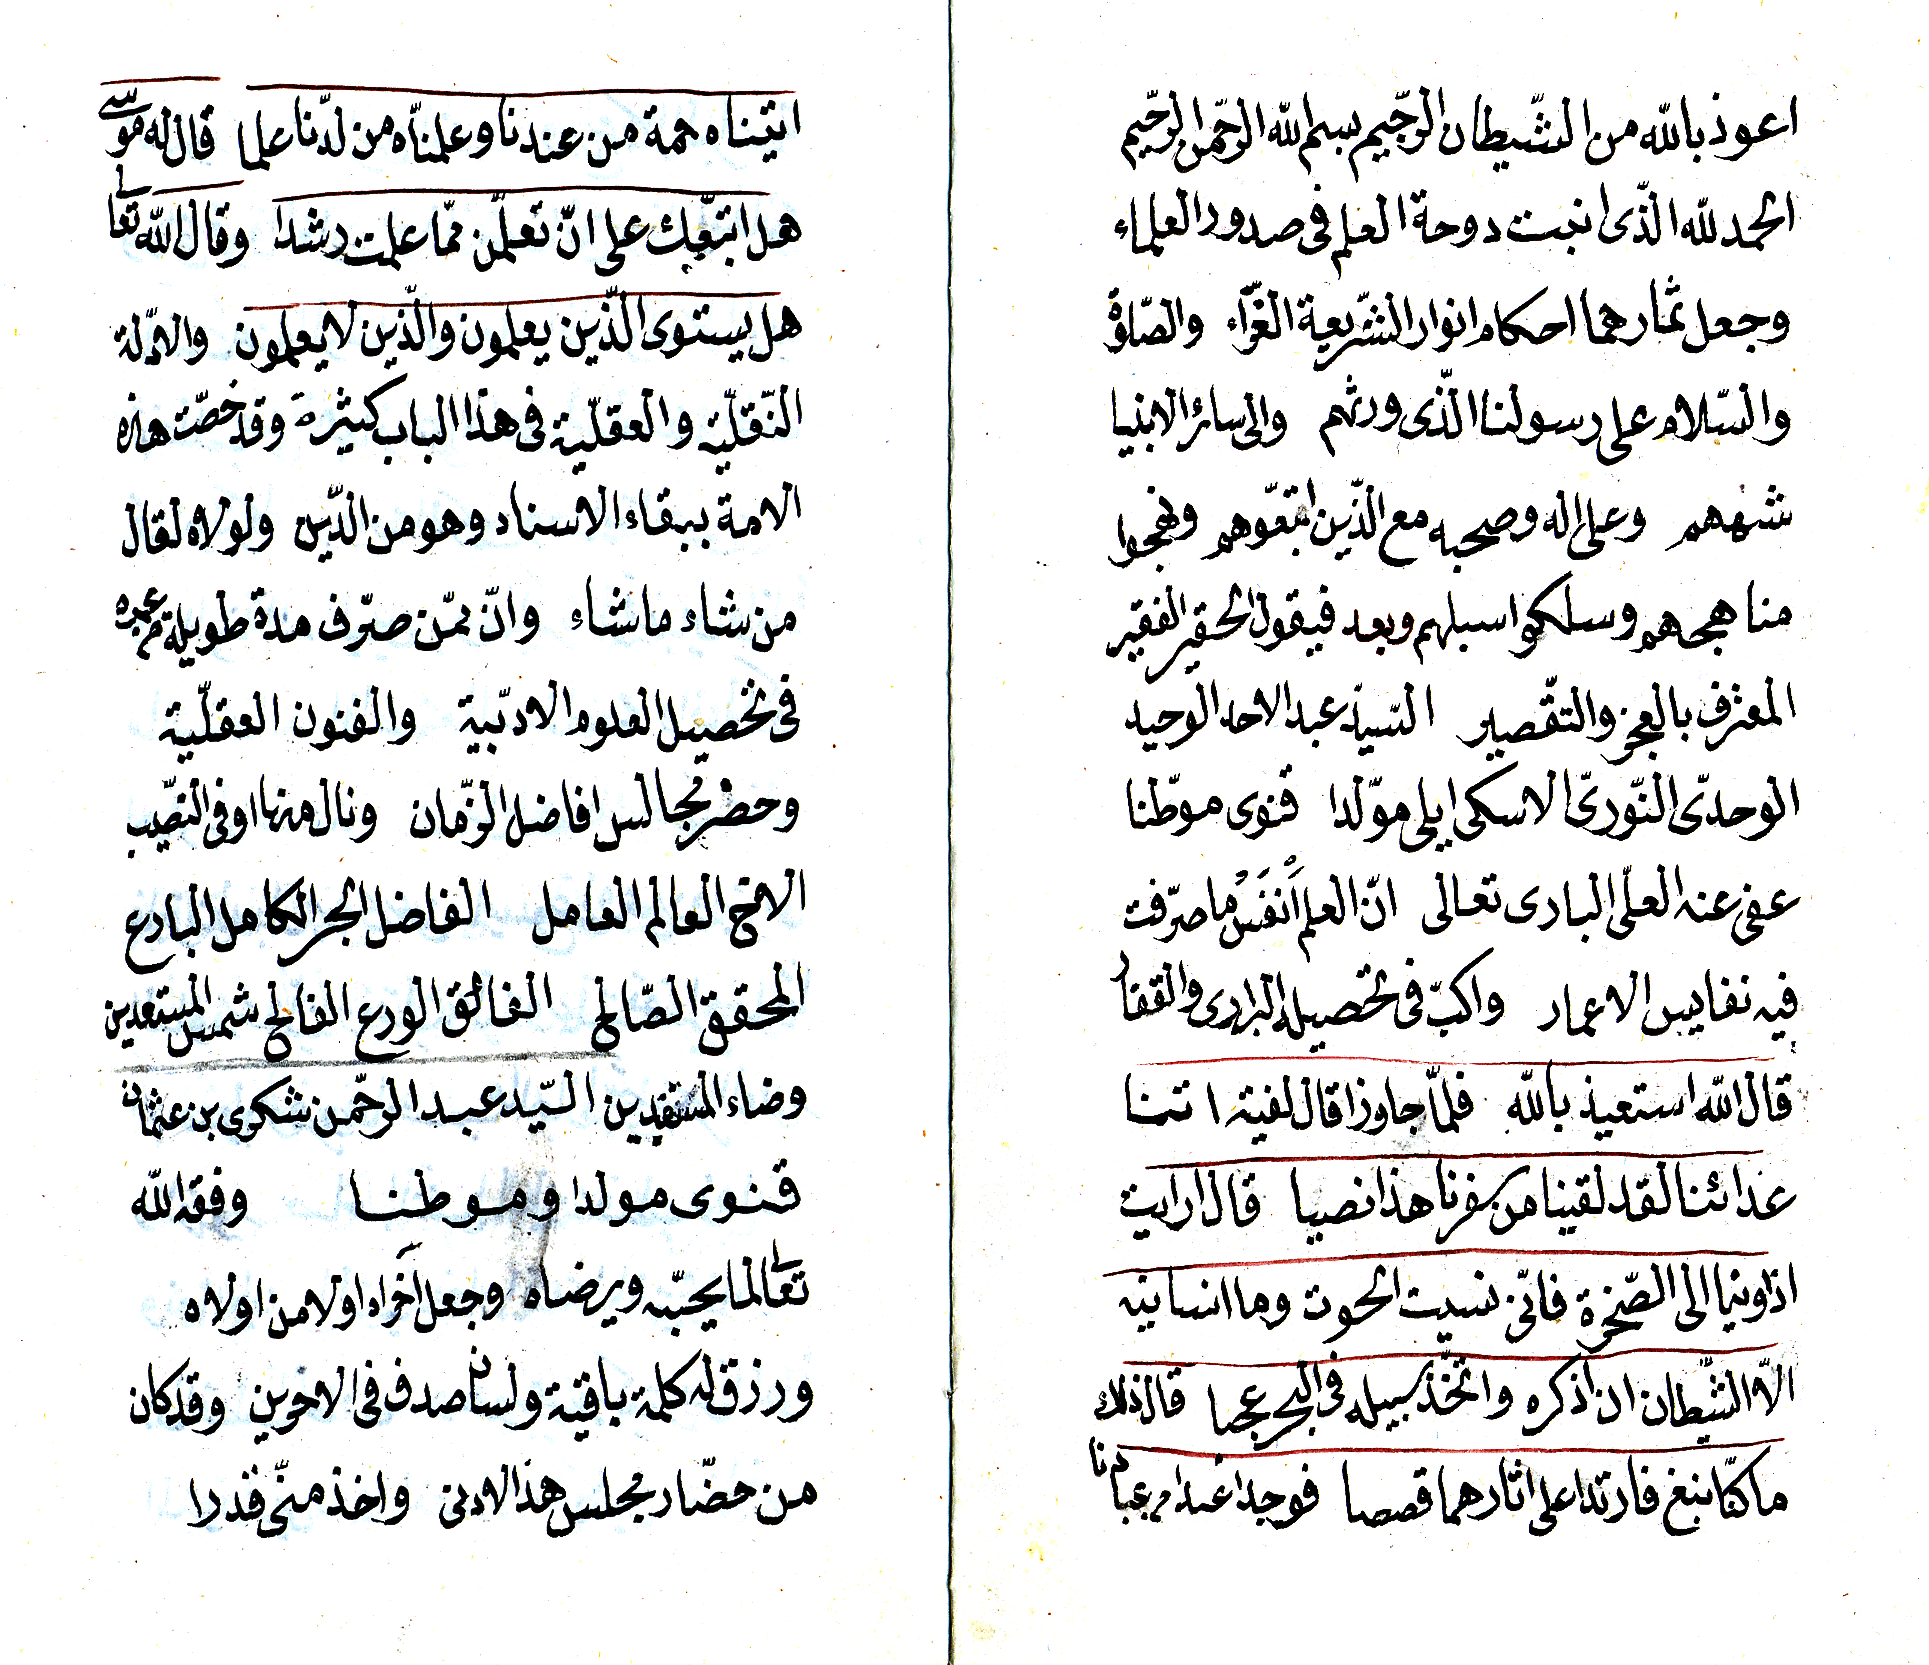 اعوذ بالله من الشّيطان الرّجيم بسم الله الرّحمن الرّحيم
الحمد لله الذّى انبت دوحة العلم فى صدور العلماء
وجعل ثمارهما احكام انوار الشّريعة الغّراء والصّلوة
والسّلام على رسولنا الذّى ورثهم والى سائر الانبيا
شبههم وعلى اله وصحبه مع الذّين اتبعّوهم ونهجوا
مناهجهم وسلكوا سبلهم وبعد فيقول الحقير الفقير
المعترف بالعجز والتقّصير السّيد عبد الاحد الوحيد
الوحدىّ النّورىّ الاسكى ايلى موّلدا قنوى موّطنا
عفى عنه العلّى البارى تعالى انّ العلم اَنفَسُ ما صرّفت
فيه نفايس الاعمار واكبّ فى تحصيله البرارى والقفار
قال الله استعيذ بالله فلمّا جاوزا قال لفتيه اتنا
غدائنا لقد لقينا من سفرنا هذا نصبا قال ارايت
اذ اوينا الى الصّخرة فانّى نسيت الحوت وما انسانيه
الاّ الشّيطان ان اذكره واتخّذ سبيله فى البحر عجبا قال ذلك
ما كنّا نبغ فارتدا على اثارهما قصصا فوجدا عبدا من عبادنا
اتيناه حمة من عندنا وعلمنّاه من لدّنا علما قال له موسى
هل ابتعّك على انّ تعلمّن ممّا علمت رشدا وقال الله تعالى
هل يستوى الّذين يعلمون والّذين لا يعلمون والادّلة
النّقليّة والعقليّة فى هذا الباب كثيرة وقد خصّت هذه
الامة ببقاء الاسناد وهو من الدّين ولولاه لقال
من شاء ما شاء وانّ ممّن صرّف مدة طويلة من عمره
فى تحصيل العلوم الادبيّة والفنون العقليّة
وحضر مجالس افاضل الزّمان ونال منها اوفى النصّيب
الاخ العالم العامل الفاضل الحبر الكامل البارع
المحقق الصّالح الفائق الورع الفالح شمس المستعدين
وضاء المستفيدين السّيد عبد الرحّمن شكرى بن عثمان
قنوى مولدا وموطنا وفقه الله
تعالى لما يحبّه ويرضاه وجعل اخراه اولا من اولاه
ورزق له كلمة باقية ولسان صدق فى الاخرين وقد كان
من حضّار مجلس هذا الادنى واخذ منّى قدرا